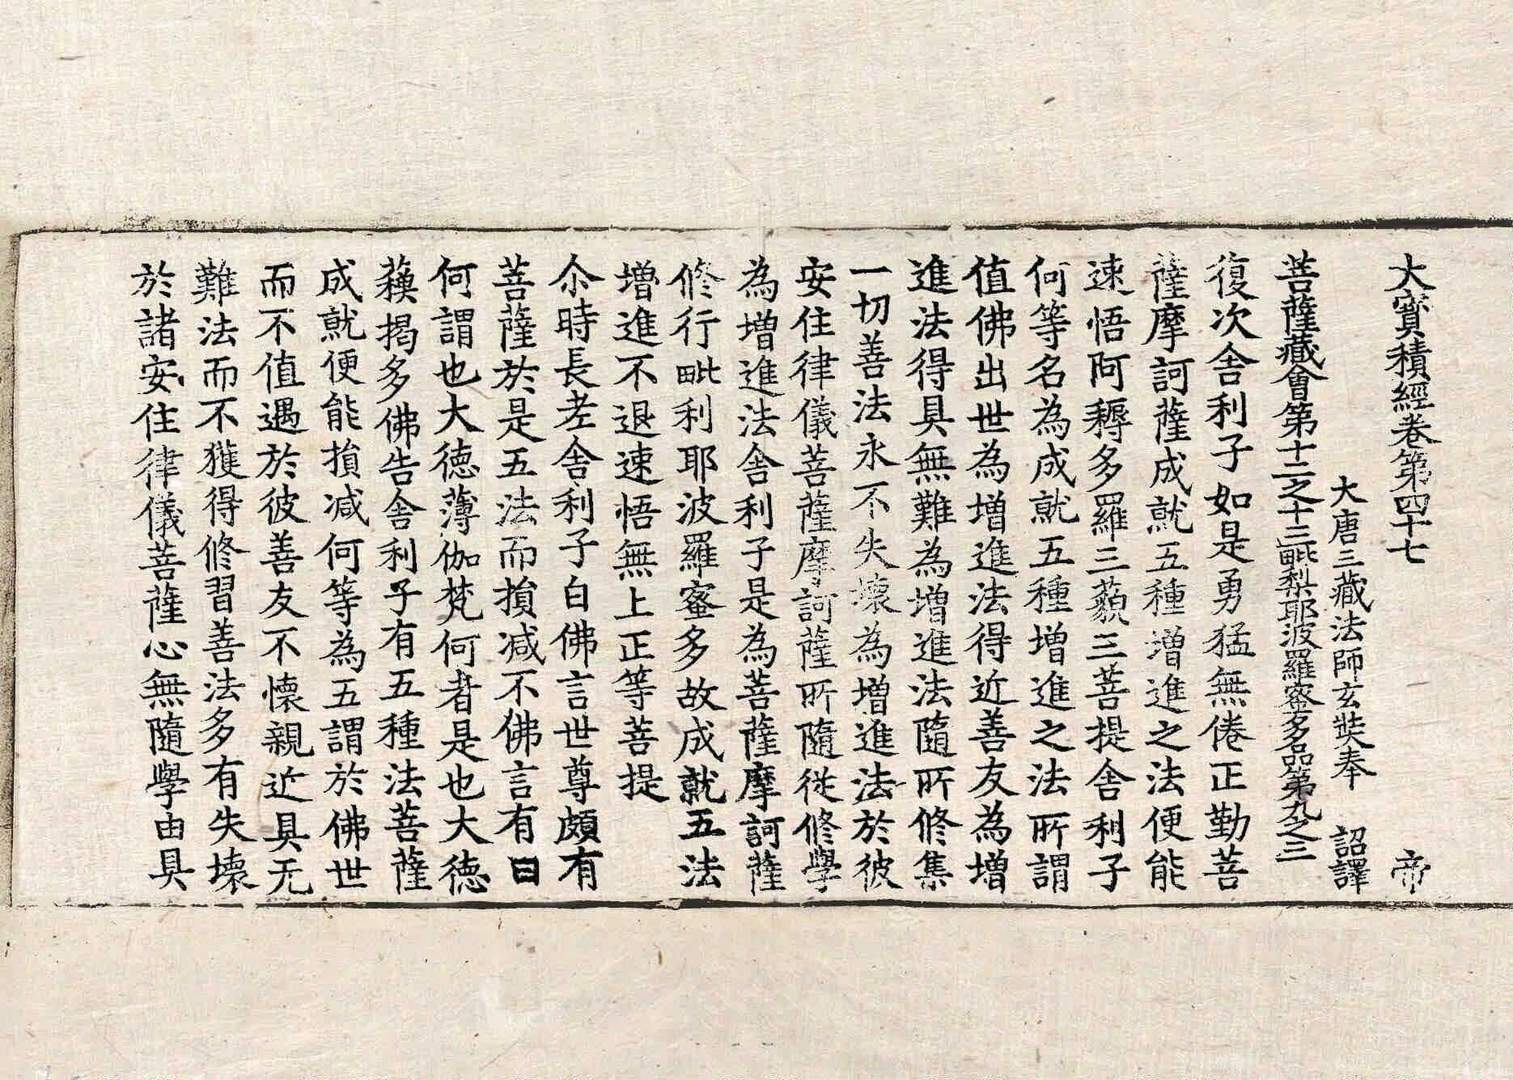 大寶積經卷第四十七 帝
大唐三藏法師玄奘奉 詔譯
菩薩藏會第十二之十三毗梨耶波羅蜜多品第九之三
復次舍利子如是勇猛無倦正勤菩
薩摩訶薩成就五種增進之法便能
速悟阿耨多羅三藐三菩提舍利子
何等名為成就五種增進之法所謂
值佛出世為增進法得近善友為增
進法得具無難為增進法隨所修集
一切善法永不失壞為增進法於彼
安住律儀菩薩摩訶薩所隨從修學
為增進法舍利子是為菩薩摩訶薩
修行毗利耶波羅蜜多故成就五法
增進不退速悟無上正等菩提
尒時長老舍利子白佛言世尊頗有
菩薩於是五法而損減不佛言有曰
何謂也大德薄伽梵何者是也大德
蘓揭多佛告舍利子有五種法菩薩
成就便能損減何等為五謂於佛世
而不值遇於彼善友不懷親近具无
難法而不獲得修習善法多有失壞
於諸安住律儀菩薩心無隨學由具